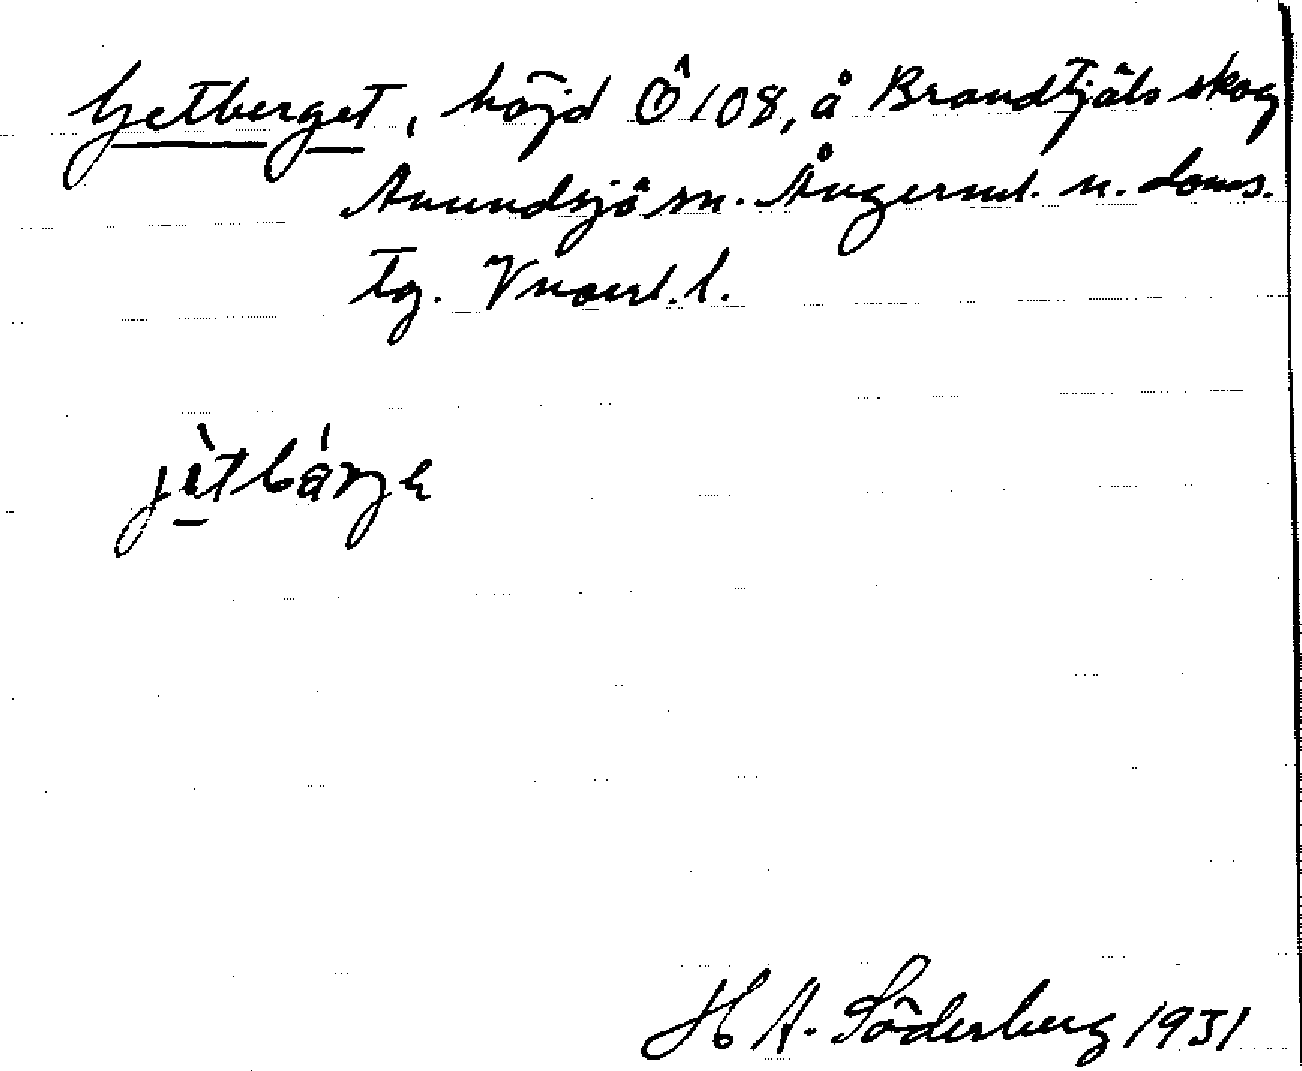 Getberget, höjd Ö 108, å Brandtjäls skog
Anundsjö sn. Ångerml. n. doms.
tg. Vnorrl. l.
jìtbárje
H A. Söderberg 1931